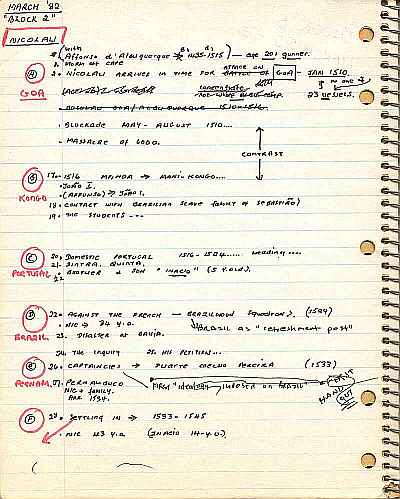 MARCH '82
"BLOCK 2"
NICOLAU
(with
Affonso d'Albuquerque → 1435-1515) — age 20; gunner.
2. WORK AT CAPE
A
3. NICOLAU ARRIVES IN TIME FOR ATTACK ON GOA - JAN 1510.
GOA
concentrate
23 VESSELS.
. BLOCKADE MAY - AUGUST 1510....
. MASSACRE OF 6000.
CONTRAST
B
17. 1516 MPINDA → MANI-KONGO....
KONGO
. JOÃO I.
. (AFFONSO) → JOÃO I.
18. CONTACT WITH BRAZILIAN SLAVE (AUNT OF SEBASTIÃO)
19. THE STUDENTS ---
C
20. DOMESTIC PORTUGAL 1516-1524...... Wedding....
PORTUGAL
21. SINTRA, QUINTA.
22. BROTHER & SON "INACIO" (5 Y.OLD).
D
22. AGAINST THE FRENCH — BRAZILWOOD SQUADRONS. (1524)
BRAZIL
. NIC → 34 Y.O.
BRAZIL AS "refreshment post"
23. DISASTER AT BAHIA.
24. THE INQUIRY 25. HIS PETITION...
E
26. CAPTAINCIES → DUARTE COELHO PEREIRA (1533)
PERNAM.
27. PERNAMBUCO
FIRM "idealism" IMPOSED ON BRAZIL
NIC + family.
ARR 1534.
F
28. SETTLING IN → 1533 - 1545
. NIC 43 Y.O. (INACIO 14-Y.O.).